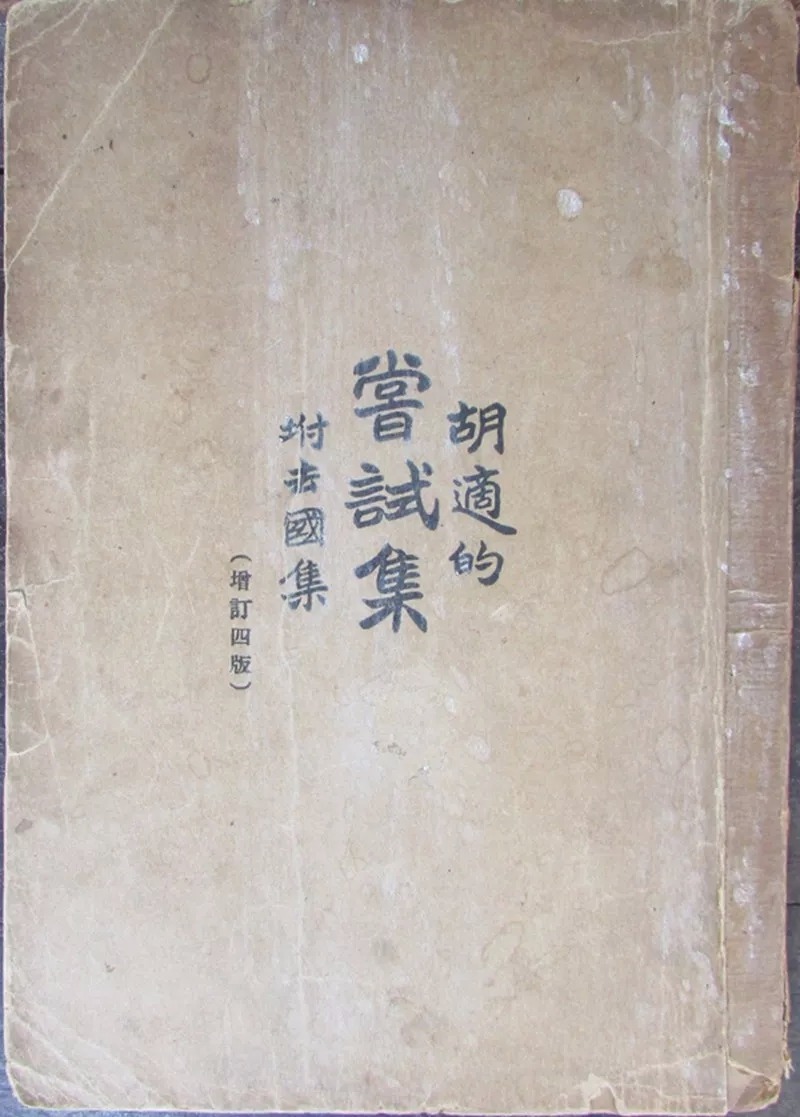 胡適的
嘗試集
坿去國集
（增訂四版）